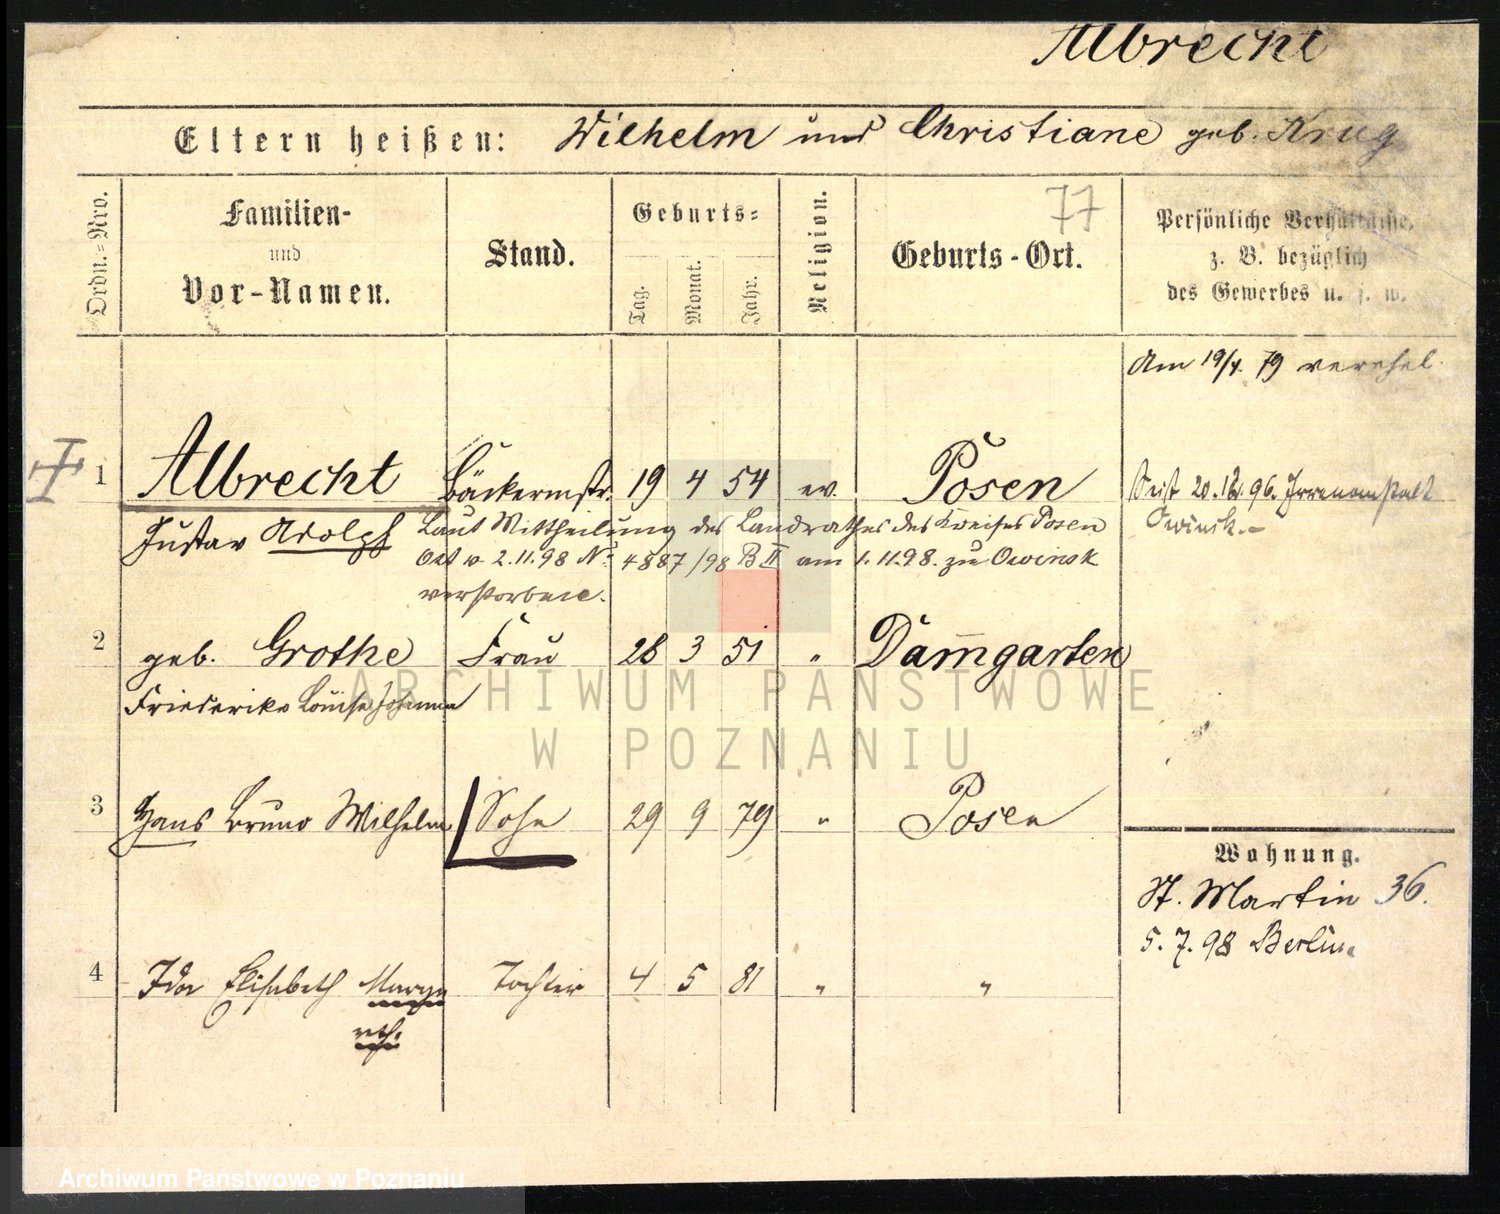 Albrecht
Eltern heißen: Wilhelm und Christiane geb. Krug
77
Ordn.-Nro.
Familien-
und
Vor-Namen.
Stand.
Geburts-
Tag.
Monat.
Jahr.
Religion.
Geburts-Ort.
Persönliche Verhältnisse,
z. B. bezüglich
des Gewerbes u. s. w.
Am 19/4. 79 verehel.
1 Albrecht Bäckermstr. 19 4 54 ev. Posen
Gustav Adolph
Seit 20.12.96. Irrenanstalt
Owinsk.
Laut Mittheilung des Landrathes des Kreises Posen
Ost v. 2.11.98 No 4887/98 B II am 1.11.98. zu Owinsk
verstorben.
2 geb. Grothe Frau 28 3 51 " Damgarten
Friederike Louise Johanna
3 Hans Bruno Wilhelm Sohn 29 9 79 " Posen
Wohnung.
St. Martin 36.
5. 7. 98 Berlin
4 Ida Elisabeth Marga Tochter 4 5 81 " "
reth.
ARCHIWUM PAŃSTWOWE
W POZNANIU
Archiwum Państwowe w Poznaniu